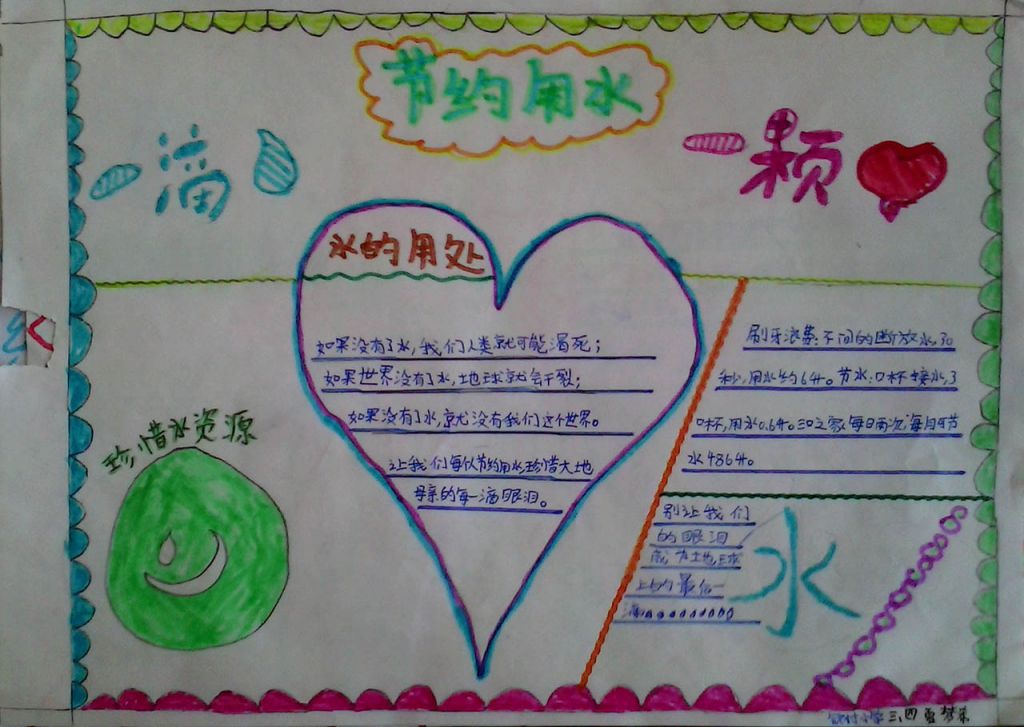 节约用水
一滴
一颗
水的用处
如果没有了水,我们人类就可能渴死;
如果世界没有了水,地球就会干裂;
如果没有了水,就没有我们这个世界。
让我们每人节约用水珍惜大地
母亲的每一滴眼泪。
珍惜水资源
刷牙浪费:不间的断放水,30
秒,用水约6升。节水:口杯接水,3
口杯,用水0.6升。三口之家每日两次,每月可节
水486升。
别让我们
的眼泪
成为地球
上的最后一
滴
水
三、四